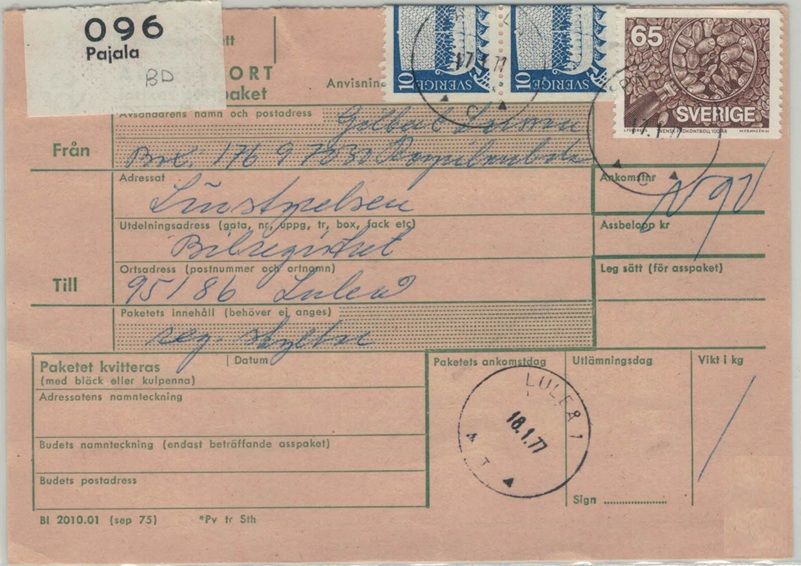 096
Pajala
BD
ORT
paket
Anvisnin
10 SVERIGE
10 SVERIGE
65
SVERIGE
17.1.77
17.1.77
C
C
Avsändarens namn och postadress
Från
Box 176 97030
Adressat
Länsstyrelsen
Ankomstnr
Utdelningsadress (gata, nr, uppg, tr, box, fack etc)
Assbelopp kr
Bilregistret
Ortsadress (postnummer och ortnamn)
Leg sätt (för asspaket)
Till
95186 Luleå
Paketets innehåll (behöver ej anges)
reg. skyltar
Paketet kvitteras
(med bläck eller kulpenna)
Datum
Paketets ankomstdag
Utlämningsdag
Vikt i kg
Adressatens namnteckning
LULEÅ 1
18.1.77
A T
Budets namnteckning (endast beträffande asspaket)
Budets postadress
Sign
Bl 2010.01 (sep 75)
*Pv tr Sth